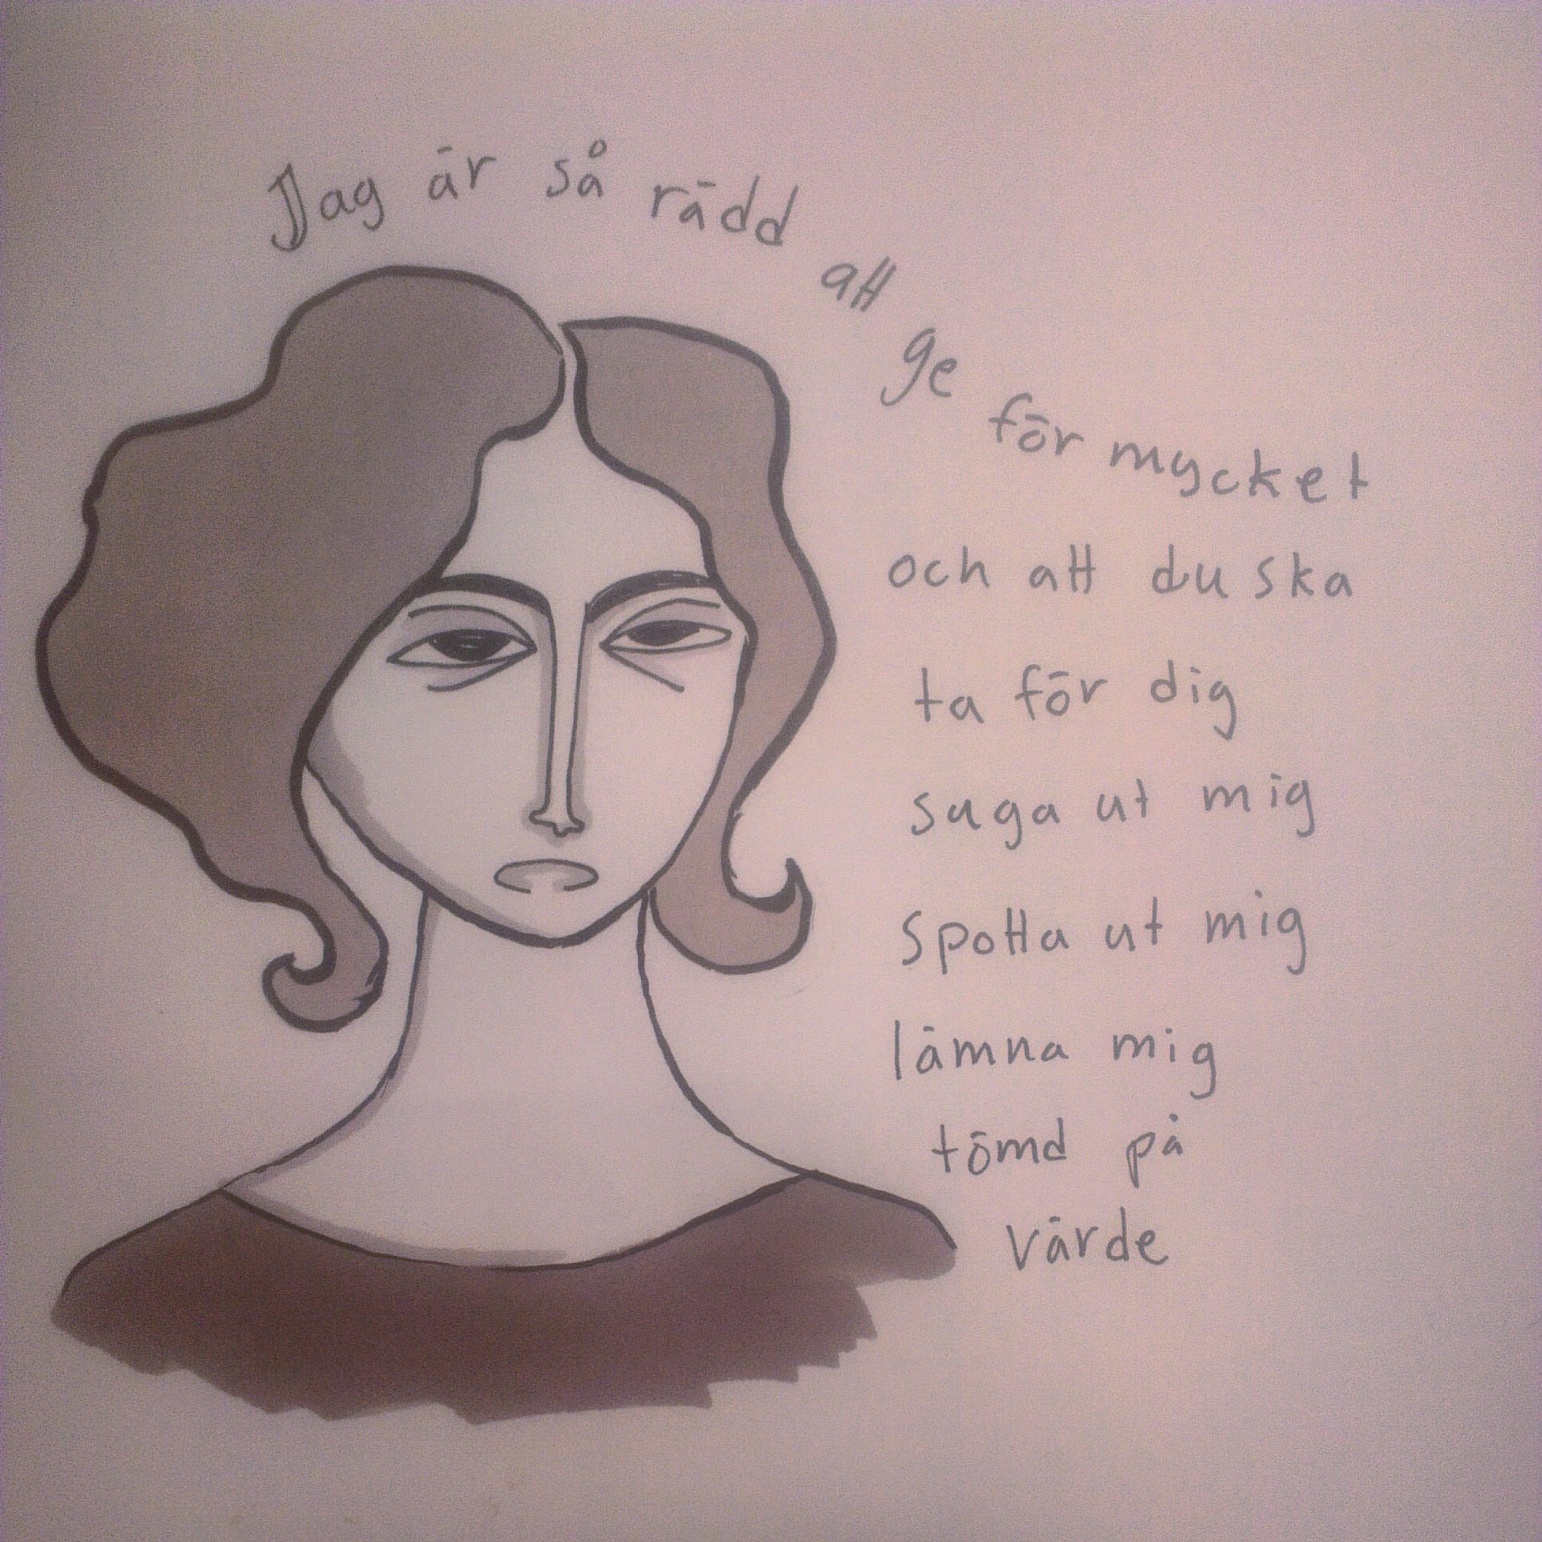 Jag är så rädd att ge för mycket
och att du ska
ta för dig
suga ut mig
spotta ut mig
lämna mig
tömd på
värde